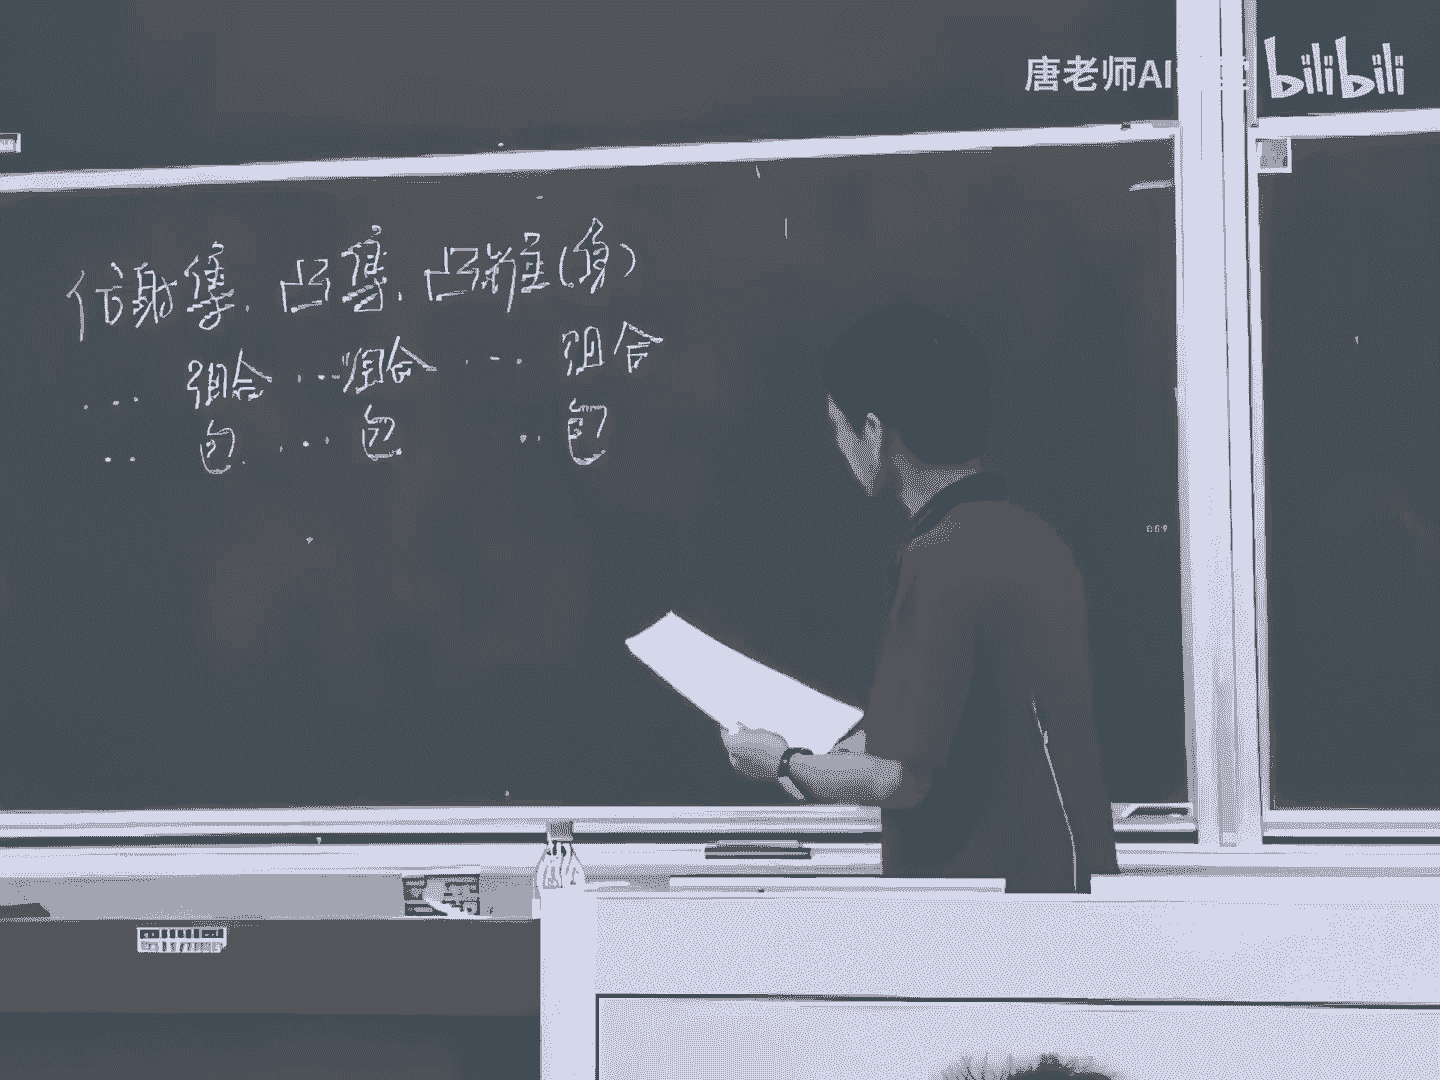 唐老师AI bilibili
仿射集. 凸集. 凸锥(集)
... 组合 ... 组合 ... 组合
.. 包 ... 包 .. 包